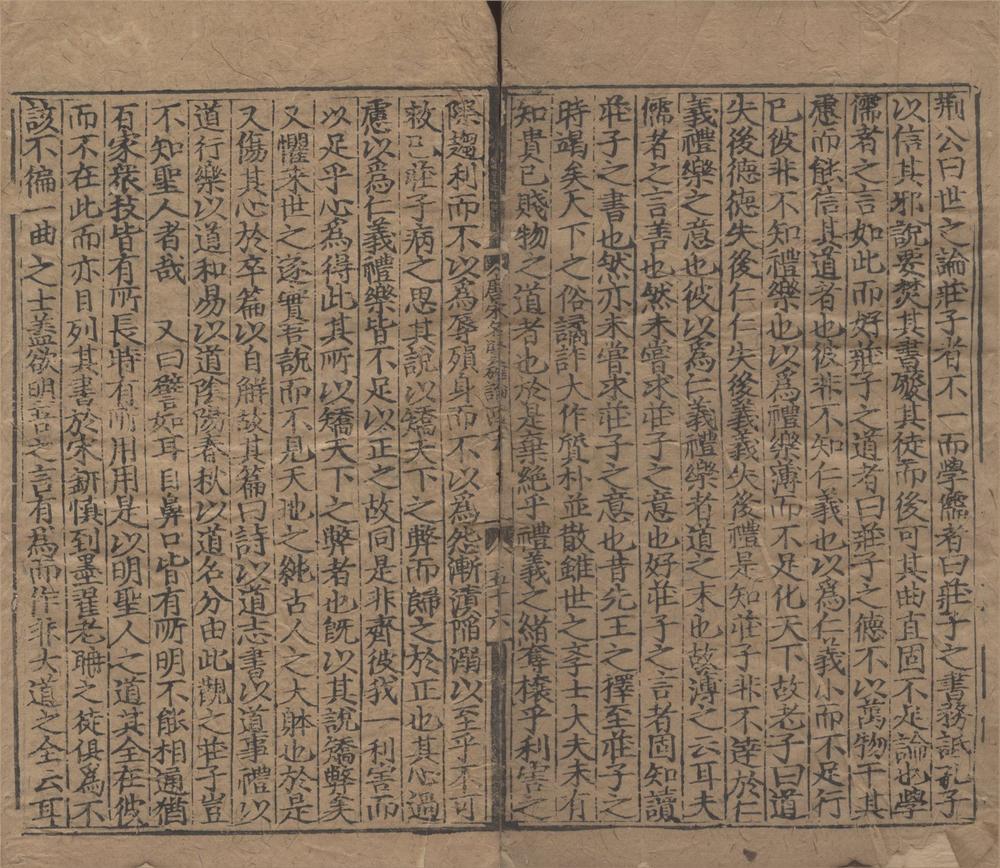 荆公曰世之論莊子者不一而學儒者曰莊子之書務詆孔子
以信其邪說要焚其書廢其徒而後可其曲直固不足論也學
儒者之言如此而好莊子之道者曰莊子之德不以萬物干其
慮而能信其道者也彼非不知仁義也以爲仁義小而不足行
已彼非不知禮樂也以爲禮樂薄而不足化天下故老子曰道
失後德德失後仁仁失後義義失後禮是知莊子非不達於仁
義禮樂之意也彼以爲仁義禮樂者道之末也故薄之云耳夫
儒者之言善也然未嘗求莊子之意也好莊子之言者固知讀
莊子之書也然亦未嘗求莊子之意也昔先王之澤至莊子之
時竭矣天下之俗譎詐大作質朴並散雖世之學士大夫未有
知貴已賤物之道者也於是棄絕乎禮義之緒奪攘乎利害之
際趨利而不以爲辱殞身而不以爲怨漸漬陷溺以至乎不可
救已莊子病之思其說以矯天下之弊而歸之於正也其心過
慮以爲仁義禮樂皆不足以正之故同是非齊彼我一利害而
以足乎心爲得此其所以矯天下之弊者也旣以其說矯弊矣
又懼来世之遂實吾說而不見天地之純古人之大躰也於是
又傷其心於卒篇以自解故其篇曰詩以道志書以道事禮以
道行樂以道和易以道隂陽春秋以道名分由此觀之莊子豈
不知聖人者哉 又曰譬如耳目鼻口皆有所明不能相通猶
百家衆技皆有所長時有所用用是以明聖人之道其全在彼
而不在此而亦自列其書於宋鈃慎到墨翟老聃之徒俱為不
該不徧一曲之士盖欲明吾之言有為而作非大道之全云耳
五十六